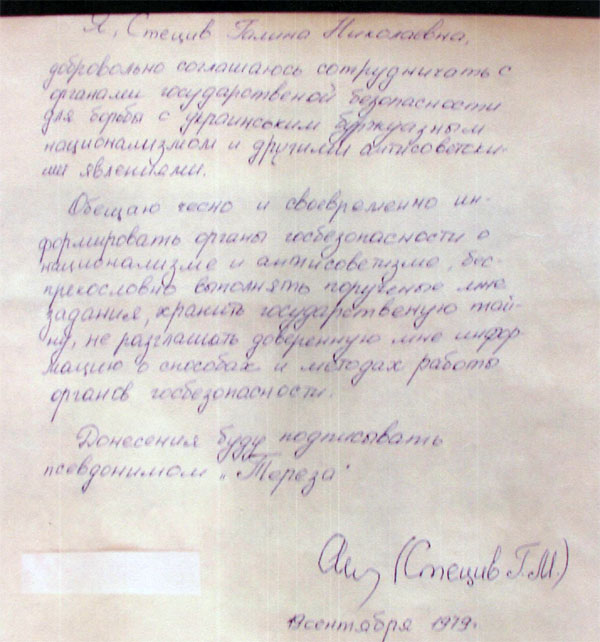 Я, Стецив Галина Николаевна,
добровольно соглашаюсь сотрудничать с
органами государственой безопасности
для борьбы с украинським буржуазным
национализмом и другими антисоветски-
ми явлениями.
Обещаю чесно и своевременно ин-
формировать органы госбезопасности о
национализме и антисоветизме, бес-
прекословно выполнять порученые мне
задания, хранить государственую тай-
ну, не разглашать доверенную мне инфор-
мацию о способах и методах работы
органов госбезопасности.
Донесения буду подписывать
псевдонимом „Тереза"
(Стецив Г.М.)
19 сентября 1979г.